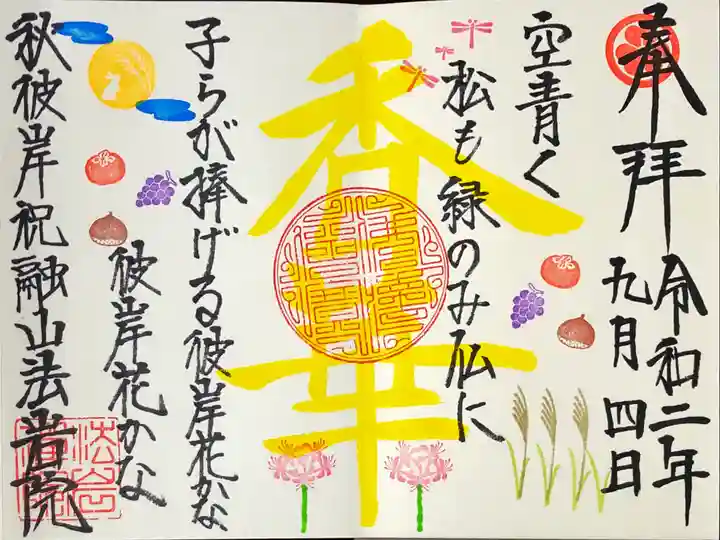 奉拝
令和二年
九月四日
空青く
松も緑のみ仏に
香華
子らが捧げる彼岸花かな
彼岸花かな
秋彼岸祝融山法音院